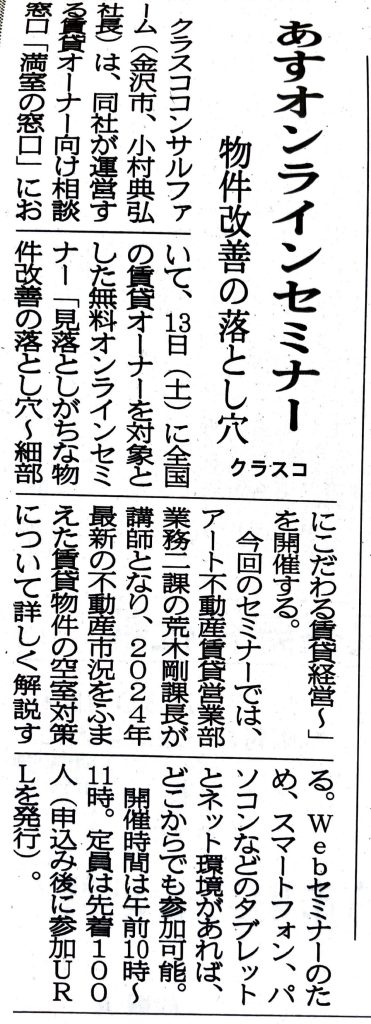 あすオンラインセミナー
物件改善の落とし穴
クラスコ
クラスココンサルファ
ーム（金沢市、小村典弘
社長）は、同社が運営す
る賃貸オーナー向け相談
窓口「満室の窓口」にお
いて、13日（土）に全国
の賃貸オーナーを対象と
した無料オンラインセミ
ナー「見落としがちな物
件改善の落とし穴～細部
にこだわる賃貸経営～」
を開催する。
今回のセミナーでは、
アート不動産賃貸営業部
業務二課の荒木剛課長が
講師となり、２０２４年
最新の不動産市況をふま
えた賃貸物件の空室対策
について詳しく解説す
る。Ｗｅｂセミナーのた
め、スマートフォン、パ
ソコンなどのタブレット
とネット環境があれば、
どこからでも参加可能。
開催時間は午前10時～
11時。定員は先着１００
人（申込み後に参加ＵＲ
Ｌを発行）。